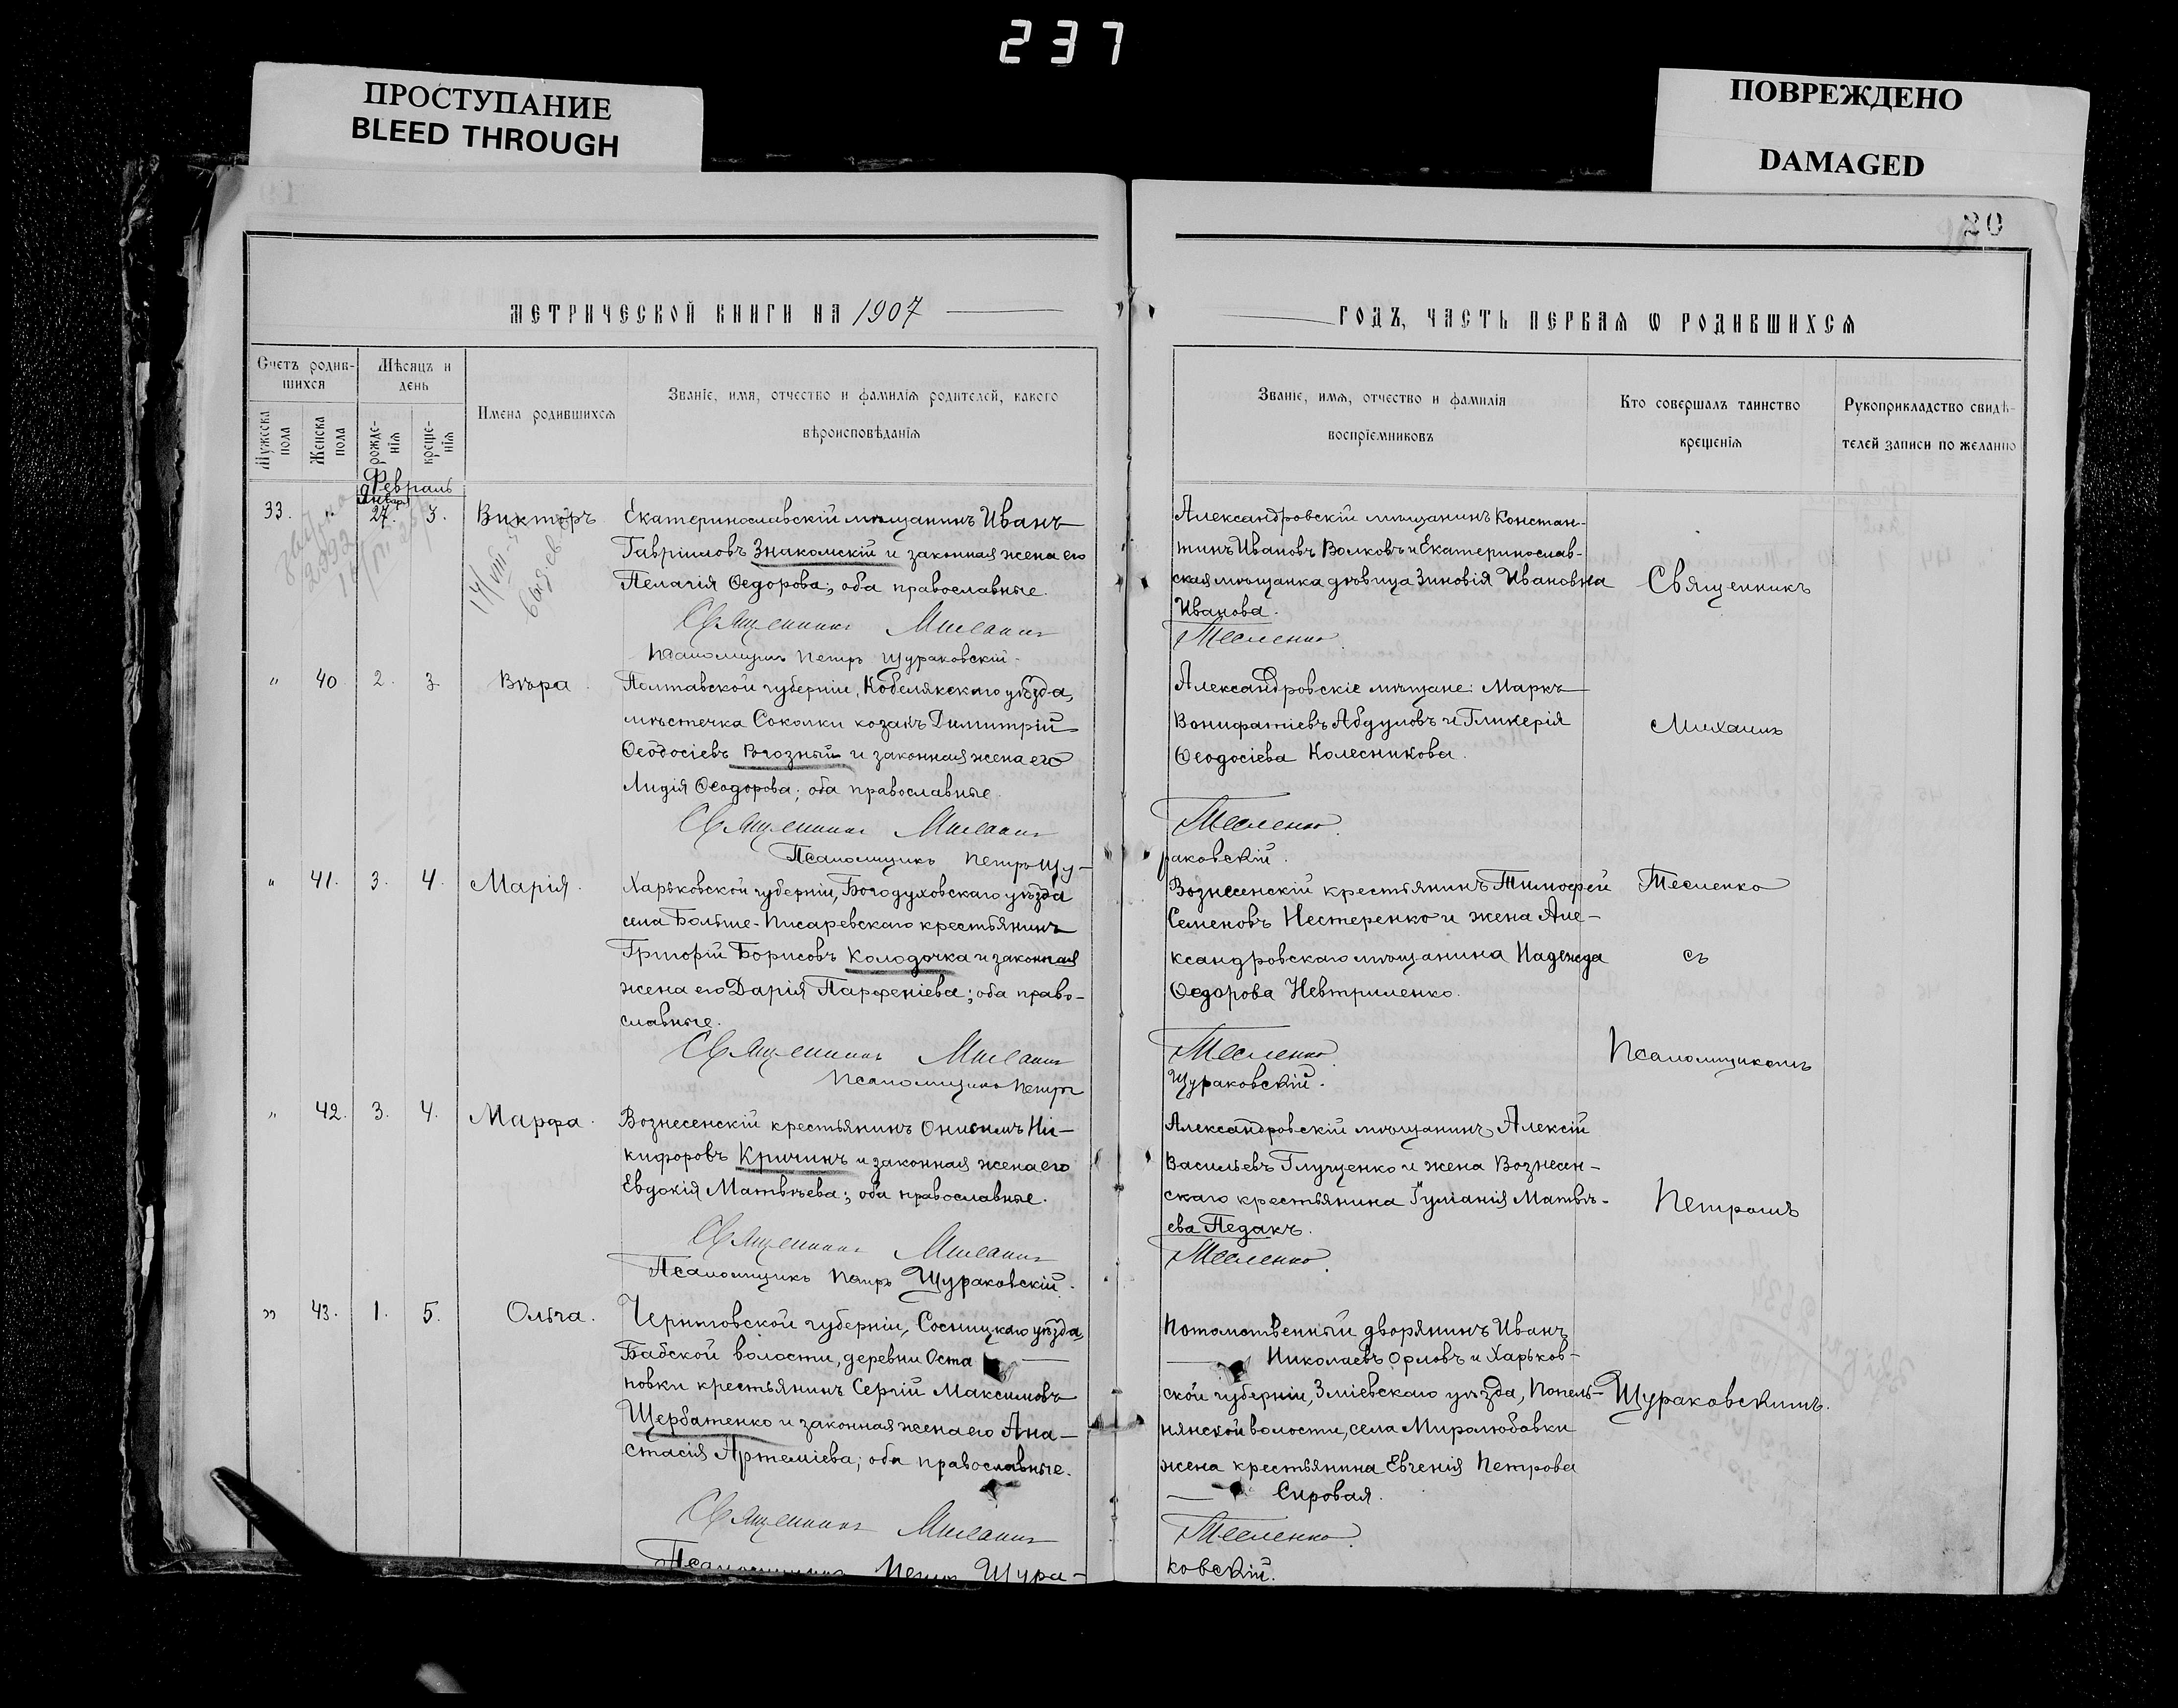 237
ПРОСТУПАНИЕ
BLEED THROUGH
ПОВРЕЖДЕНО
DAMAGED
20
МЕТРИЧЕСКОЙ КНИГИ НА 1907
ГОДЪ, ЧАСТЬ ПЕРВАЯ Ѡ РОДИВШИХСЯ
Счетъ родив-
шихся
Мужеска пола
Женска пола
Мѣсяцъ и
день
рожде-
нія
креще-
нія
Имена родившихся
Званіе, имя, отчество и фамилія родителей, какого
вѣроисповѣданія
Званіе, имя, отчество и фамилія
воспріемниковъ
Кто совершалъ таинство
крещенія
Рукоприкладство свидѣ-
телей записи по желанію
Февраль
Январ
33. " 27. 3. Викторъ
Екатеринославскій мѣщанинъ Иванъ
Гавріиловъ Знакомскій и законная жена его
Пелагія Ѳедорова; оба православные.
Священникъ Михаилъ
Псаломщикъ Петръ Щураковскій.
Александровскій мѣщанинъ Констан-
тинъ Ивановъ Волковъ и Екатеринослав-
ская мѣщанка дѣвица Зиновія Ивановна
Иванова.
Тесленко.
" 40 2. 3 Вѣра.
Полтавской губерніи, Кобелякскаго уѣзда,
мѣстечка Соколки козакъ Димитрій
Ѳеодосіевъ Рогозный и законная жена его
Лидія Ѳеодорова; оба православные.
Священникъ Михаилъ
Псаломщикъ Петръ Щу-
Александровскіе мѣщане: Маркъ
Вонифатіевъ Абдуловъ и Гликерія
Ѳеодосіева Колесникова.
Тесленко.
раковскій.
" 41. 3. 4. Марія.
Харьковской губерніи, Богодуховскаго уѣзда
села Больше-Писаревскаго крестьянинъ
Григорій Борисовъ Колодочка и законная
жена его Дарія Парѳеніева; оба право-
славные.
Священникъ Михаилъ
Псаломщикъ Петръ
Вознесенскій крестьянинъ Тимоѳей
Семеновъ Нестеренко и жена Але-
ксандровскаго мѣщанина Надежда
Ѳедорова Невтриленко.
Тесленко
Щураковскій.
" 42. 3. 4. Марфа.
Вознесенскій крестьянинъ Онисимъ Ни-
кифоровъ Кричинъ и законная жена его
Евдокія Матвѣева; оба православные.
Священникъ Михаилъ
Псаломщикъ Петръ Щураковскій.
Александровскій мѣщанинъ Алексій
Васильевъ Глущенко и жена Вознесен-
скаго крестьянина Іуліанія Матвѣ-
ева Педакъ.
Тесленко.
" 43. 1. 5. Ольга.
Черниговской губерніи, Сосницкаго уѣзда,
Бабской волости, деревни Оста
повки крестьянинъ Сергій Максимовъ
Щербатенко и законная жена его Ана-
стасія Артеміева; оба православные.
Священникъ Михаилъ
Псаломщикъ Петръ Щура-
Потомственный дворянинъ Иванъ
Николаевъ Орловъ и Харьков-
ской губерніи, Зміевскаго уѣзда, Попель-
нянской волости, села Миролюбовки
жена крестьянина Евгенія Петрова
Сировая.
Тесленко.
ковскій.
Священникъ
Михаилъ
Тесленко
съ
Псаломщикомъ
Петромъ
Щураковскимъ.